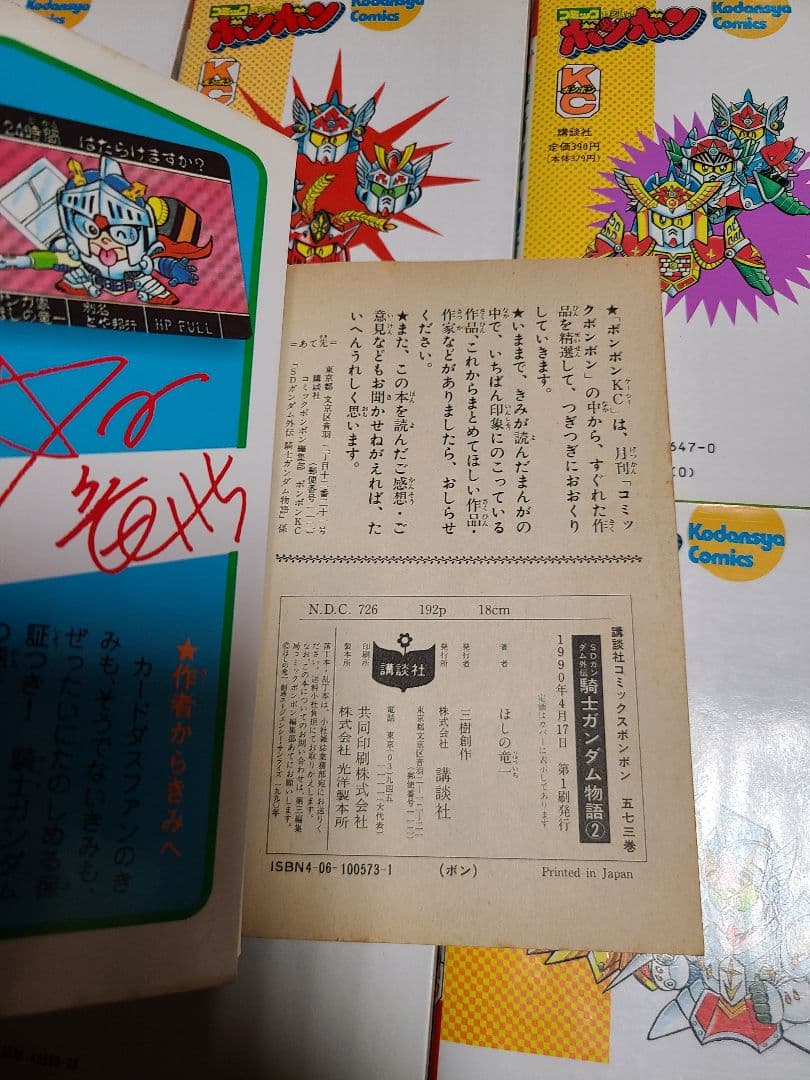 コミック
ボンボン
Kodansya
Comics
KC
ボンボン
コミック
ボンボン
Kodansya
Comics
KC
ボンボン
講談社
定価390円
(本体379円)
24時間 はたらけますか?
別名
HP FULL
★作者からきみへ
カードダスファンのき
みも、そうでないきみも、
★「ボンボンKC」は、月刊「コミッ
クボンボン」の中から、すぐれた作
品を精選して、つぎつぎにおおくり
していきます。
★いままで、きみが読んだまんがの
中で、いちばん印象にのこっている
作品、これからまとめてほしい作品・
作家などがありましたら、おしらせ
ください。
★また、この本を読んだご感想・ご
意見などもお聞かせねがえれば、た
いへんうれしく思います。
=あて先=
東京都 文京区音羽 二丁目十二番二十一号
(郵便番号一一二)
講談社
コミックボンボン編集部 ボンボンKC
「SDガンダム外伝 騎士ガンダム物語」係
N.D.C. 726 192p 18cm
講談社コミックスボンボン 五七三巻
SDガンダム外伝 騎士ガンダム物語②
1990年4月17日 第1刷発行
定価はカバーに表示してあります
著者 ほしの竜一
発行者 三樹創作
発行所 株式会社 講談社
東京都文京区音羽二-一二-二一
(郵便番号一一二)
電話 東京(03)九四五
一一一一(大代表)
印刷所 共同印刷株式会社
製本所 株式会社 光洋製本所
講談社
落丁本・乱丁本は、小社雑誌業務部宛にお送りく
ださい。送料小社負担にてお取りかえします。
なお、この本についてのお問い合わせは、第三編集
局コミックボンボン編集部あてにお願いします。
ISBN4-06-100573-1 (ボン) Printed in Japan
647-0
Kodansya
Comics